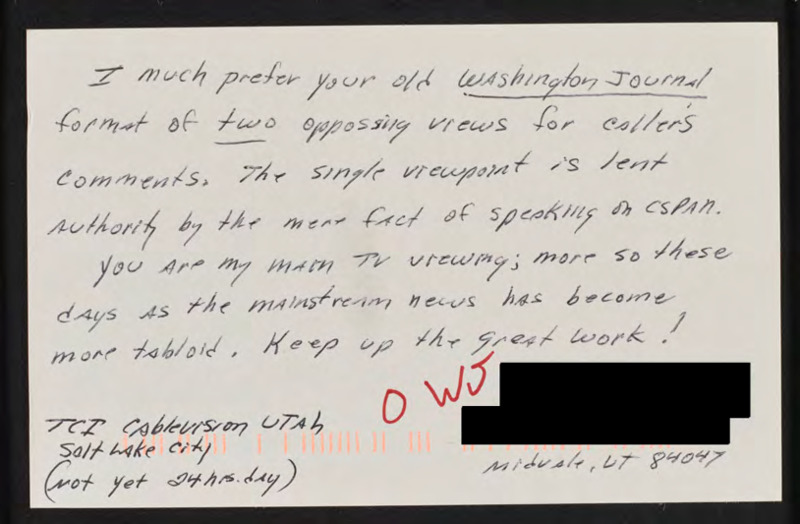 I much prefer your old Washington Journal
format of two oppossing views for caller's
comments. The single viewpoint is lent
authority by the mere fact of speaking on CSPAN.
You are my main TV viewing; more so these
days as the mainstream news has become
more tabloid. Keep up the great work!
O WJ
TCI Cablevision Utah
Salt Lake City
(not yet 24 hrs. day)
Midvale, UT 84047